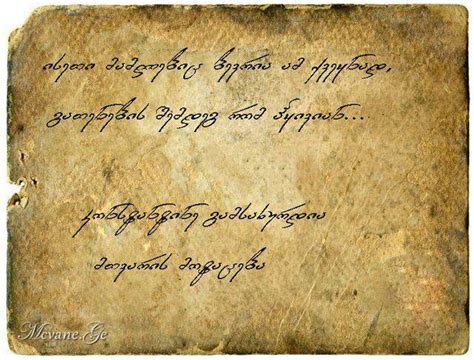 ისეთი მამლებიც ბევრია ამ ქვეყნად,
გათენების შემდეგ რომ ჰყივიან...
კონსტანტინე გამსახურდია
მთვარის მოტაცება
Mcvane.Ge